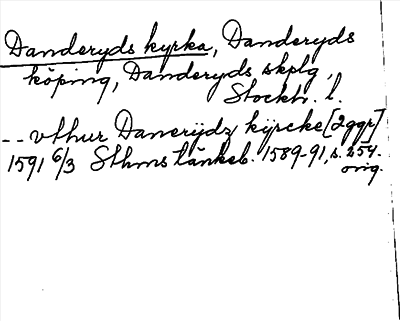 Danderyds kyrka, Danderyds
köping, Danderyds skplg,
Stockh. l.
-- vthur Danerÿdz kÿrcke [2ggr]
1591 6/3 Sthms tänkeb. 1589-91, s. 254.
orig.